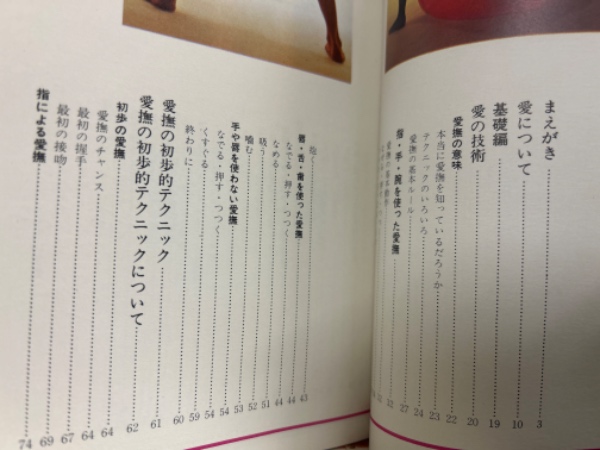 まえがき 3
愛について 10
基礎編 19
愛の技術 20
愛撫の意味 22
本当に愛撫を知っているだろうか 23
テクニックのいろいろ 24
愛撫の基本ルール 27
指・手・腕を使った愛撫
唇・舌・歯を使った愛撫 44
なでる・押す・つつく 44
なめる 51
吸う 52
噛む 53
手や唇を使わない愛撫 53
なでる・押す・つつく 54
くすぐる 54
終わりに 59
60
愛撫の初歩的テクニック 61
愛撫の初歩的テクニックについて 62
初歩の愛撫 64
愛撫のチャンス 64
最初の握手 67
最初の接吻 69
指による愛撫 74